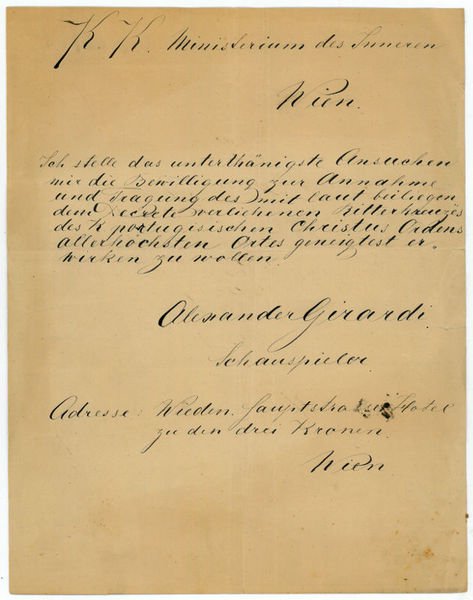 K. K. Ministerium des Inneren
Wien.
Ich stelle das unterthänigste Ansuchen
mir die Bewilligung zur Annahme
und Tragung des mit laut beiliegen
dem Decrete verliehenen Ritterkreuzes
des K. portugisischen Christus Ordens
allerhöchsten Ortes geneigtest er-
wirken zu wollen.
Alexander Girardi
Schauspieler
Adresse: Wieden, Hauptstrasse Hotel
zu den drei Kronen.
Wien